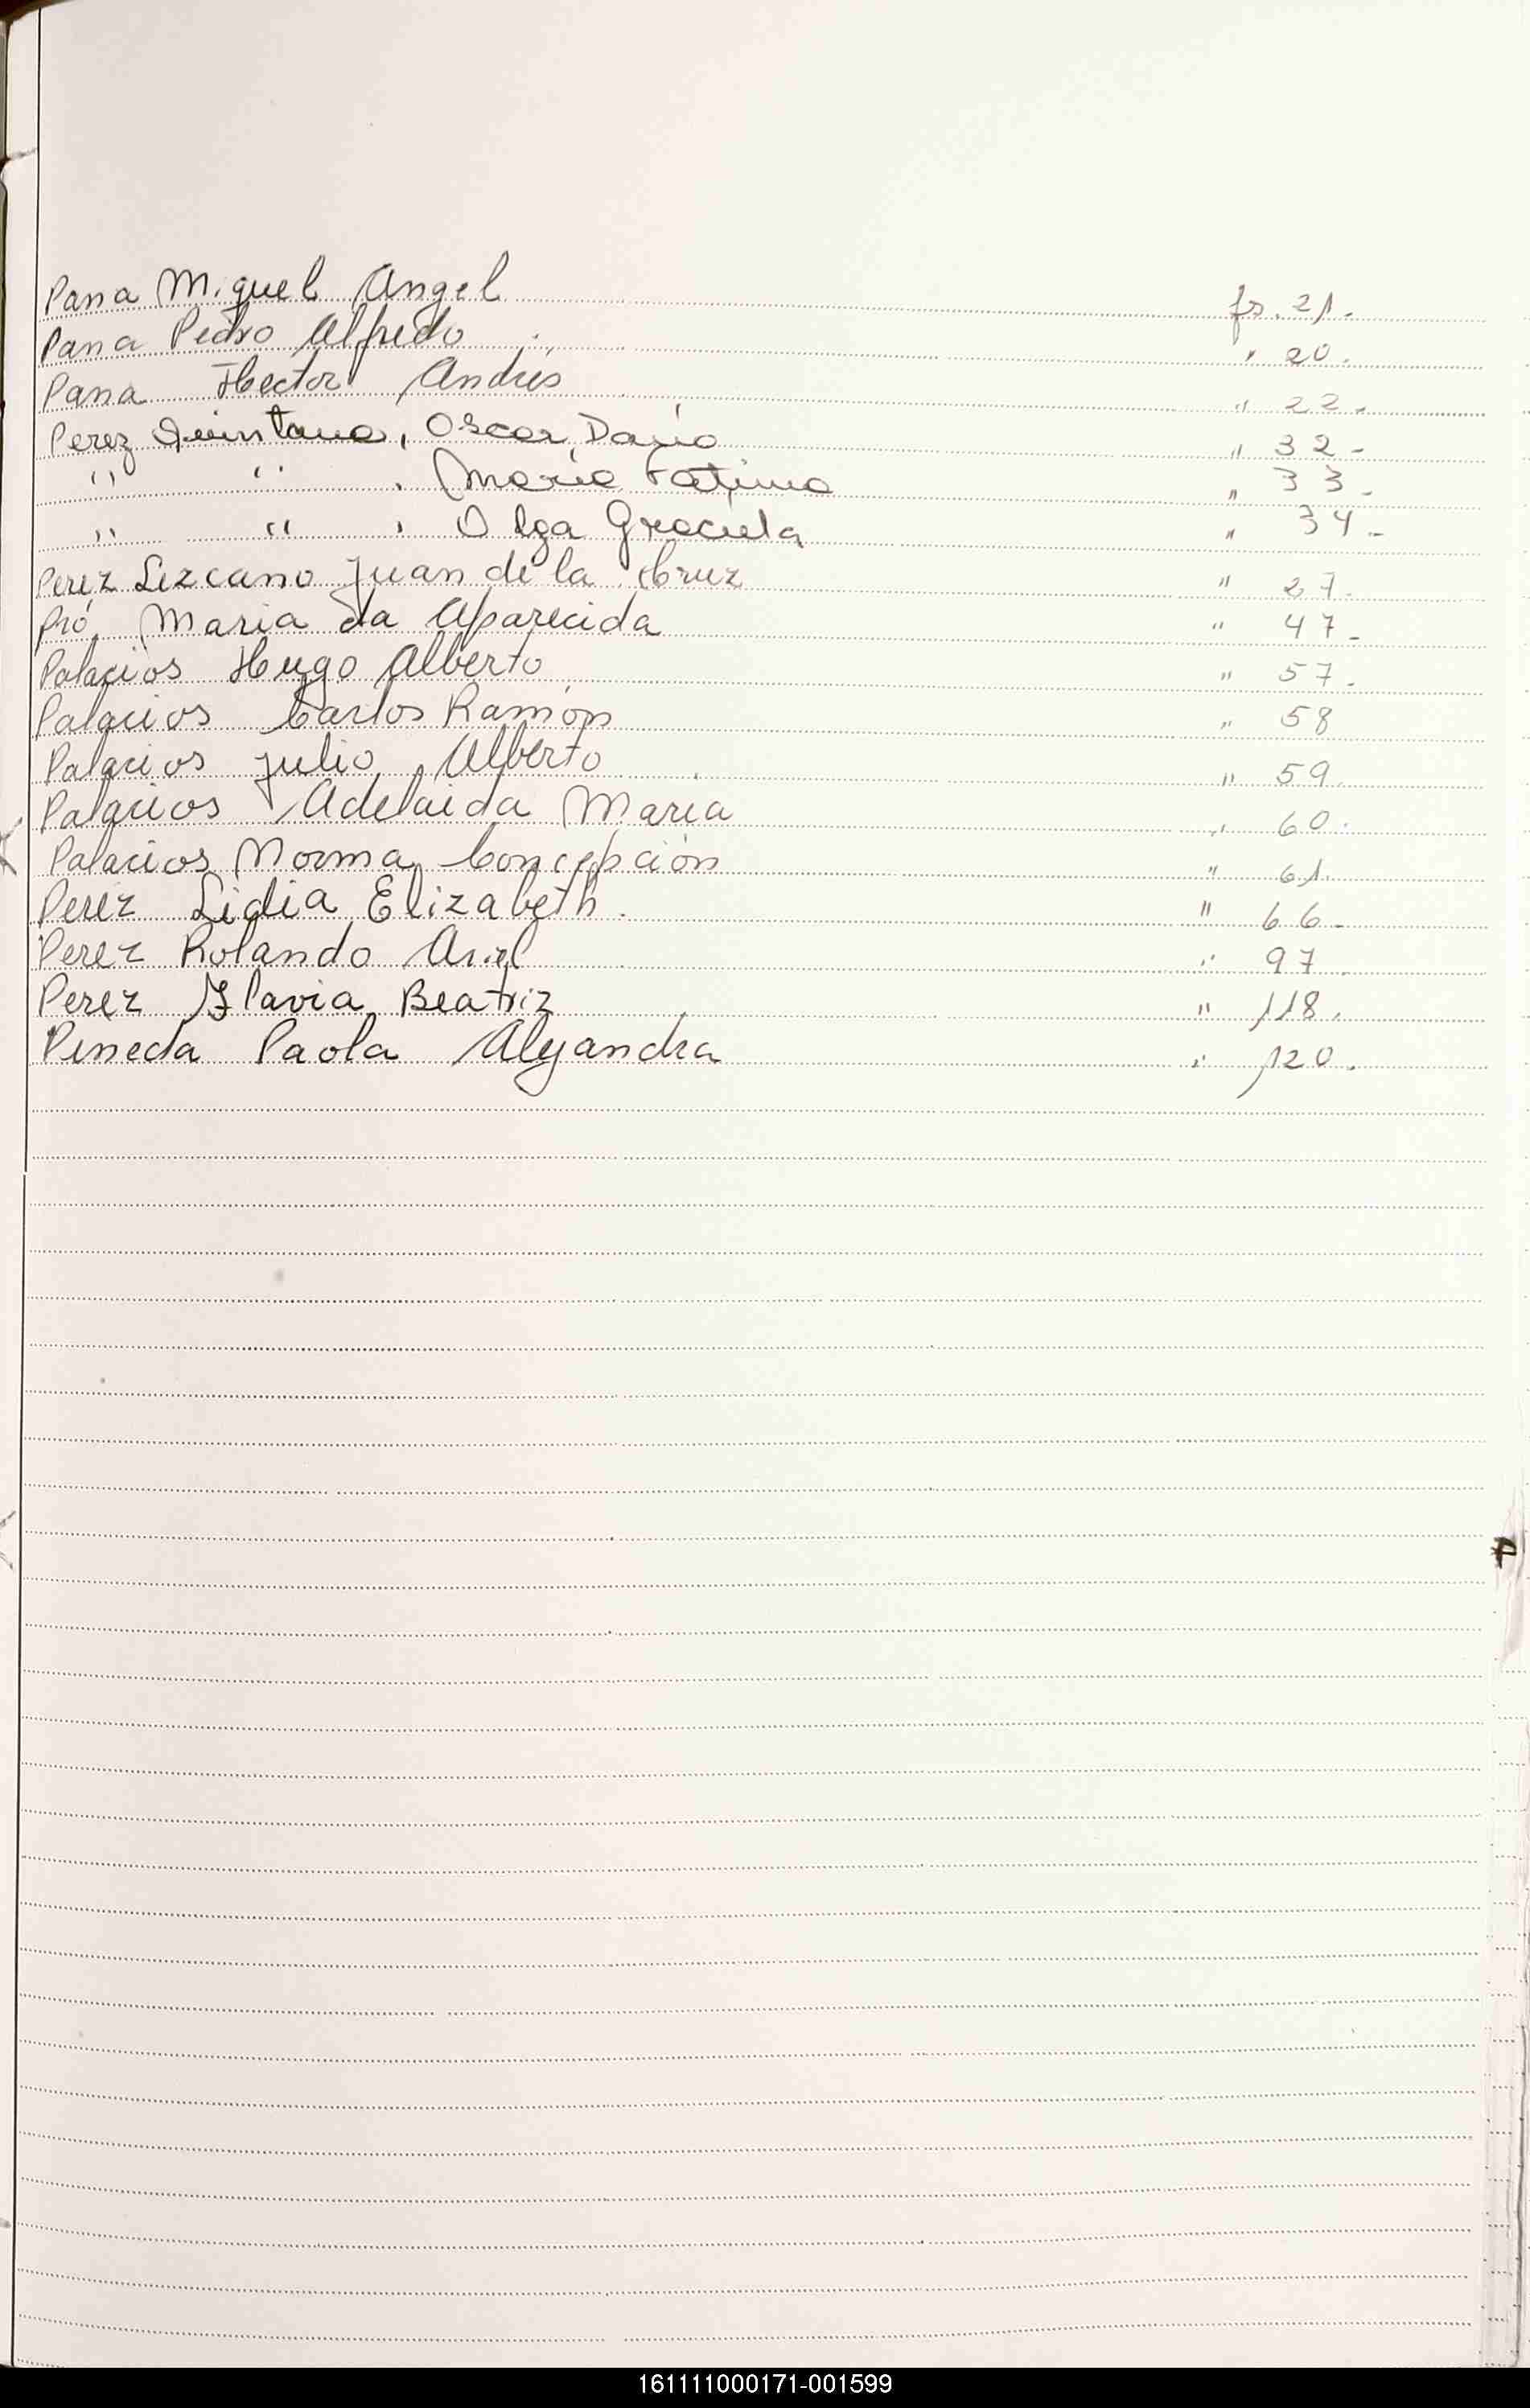 Pana Miguel Angel fs. 21.
Pana Pedro Alfredo " 20.
Pana Hector Andrés " 22.
Perez Quintana, Oscar Darío " 32-
" " , María Fatima " 33-
" " , Olga Graciela " 34-
Perez Lezcano Juan de la Cruz " 27.
Pró, Maria da Aparecida " 47-
Palacios Hugo Alberto " 57.
Palacios Carlos Ramón " 58
Palacios Julio Alberto " 59.
Palacios Adelaida María " 60.
Palacios Norma Concepción " 61.
Perez Lidia Elizabeth. " 66-
Perez Rolando Ariel " 97.
Perez Flavia Beatriz " 118.
Pineda Paola Alejandra " 120.
P
161111000171-001599